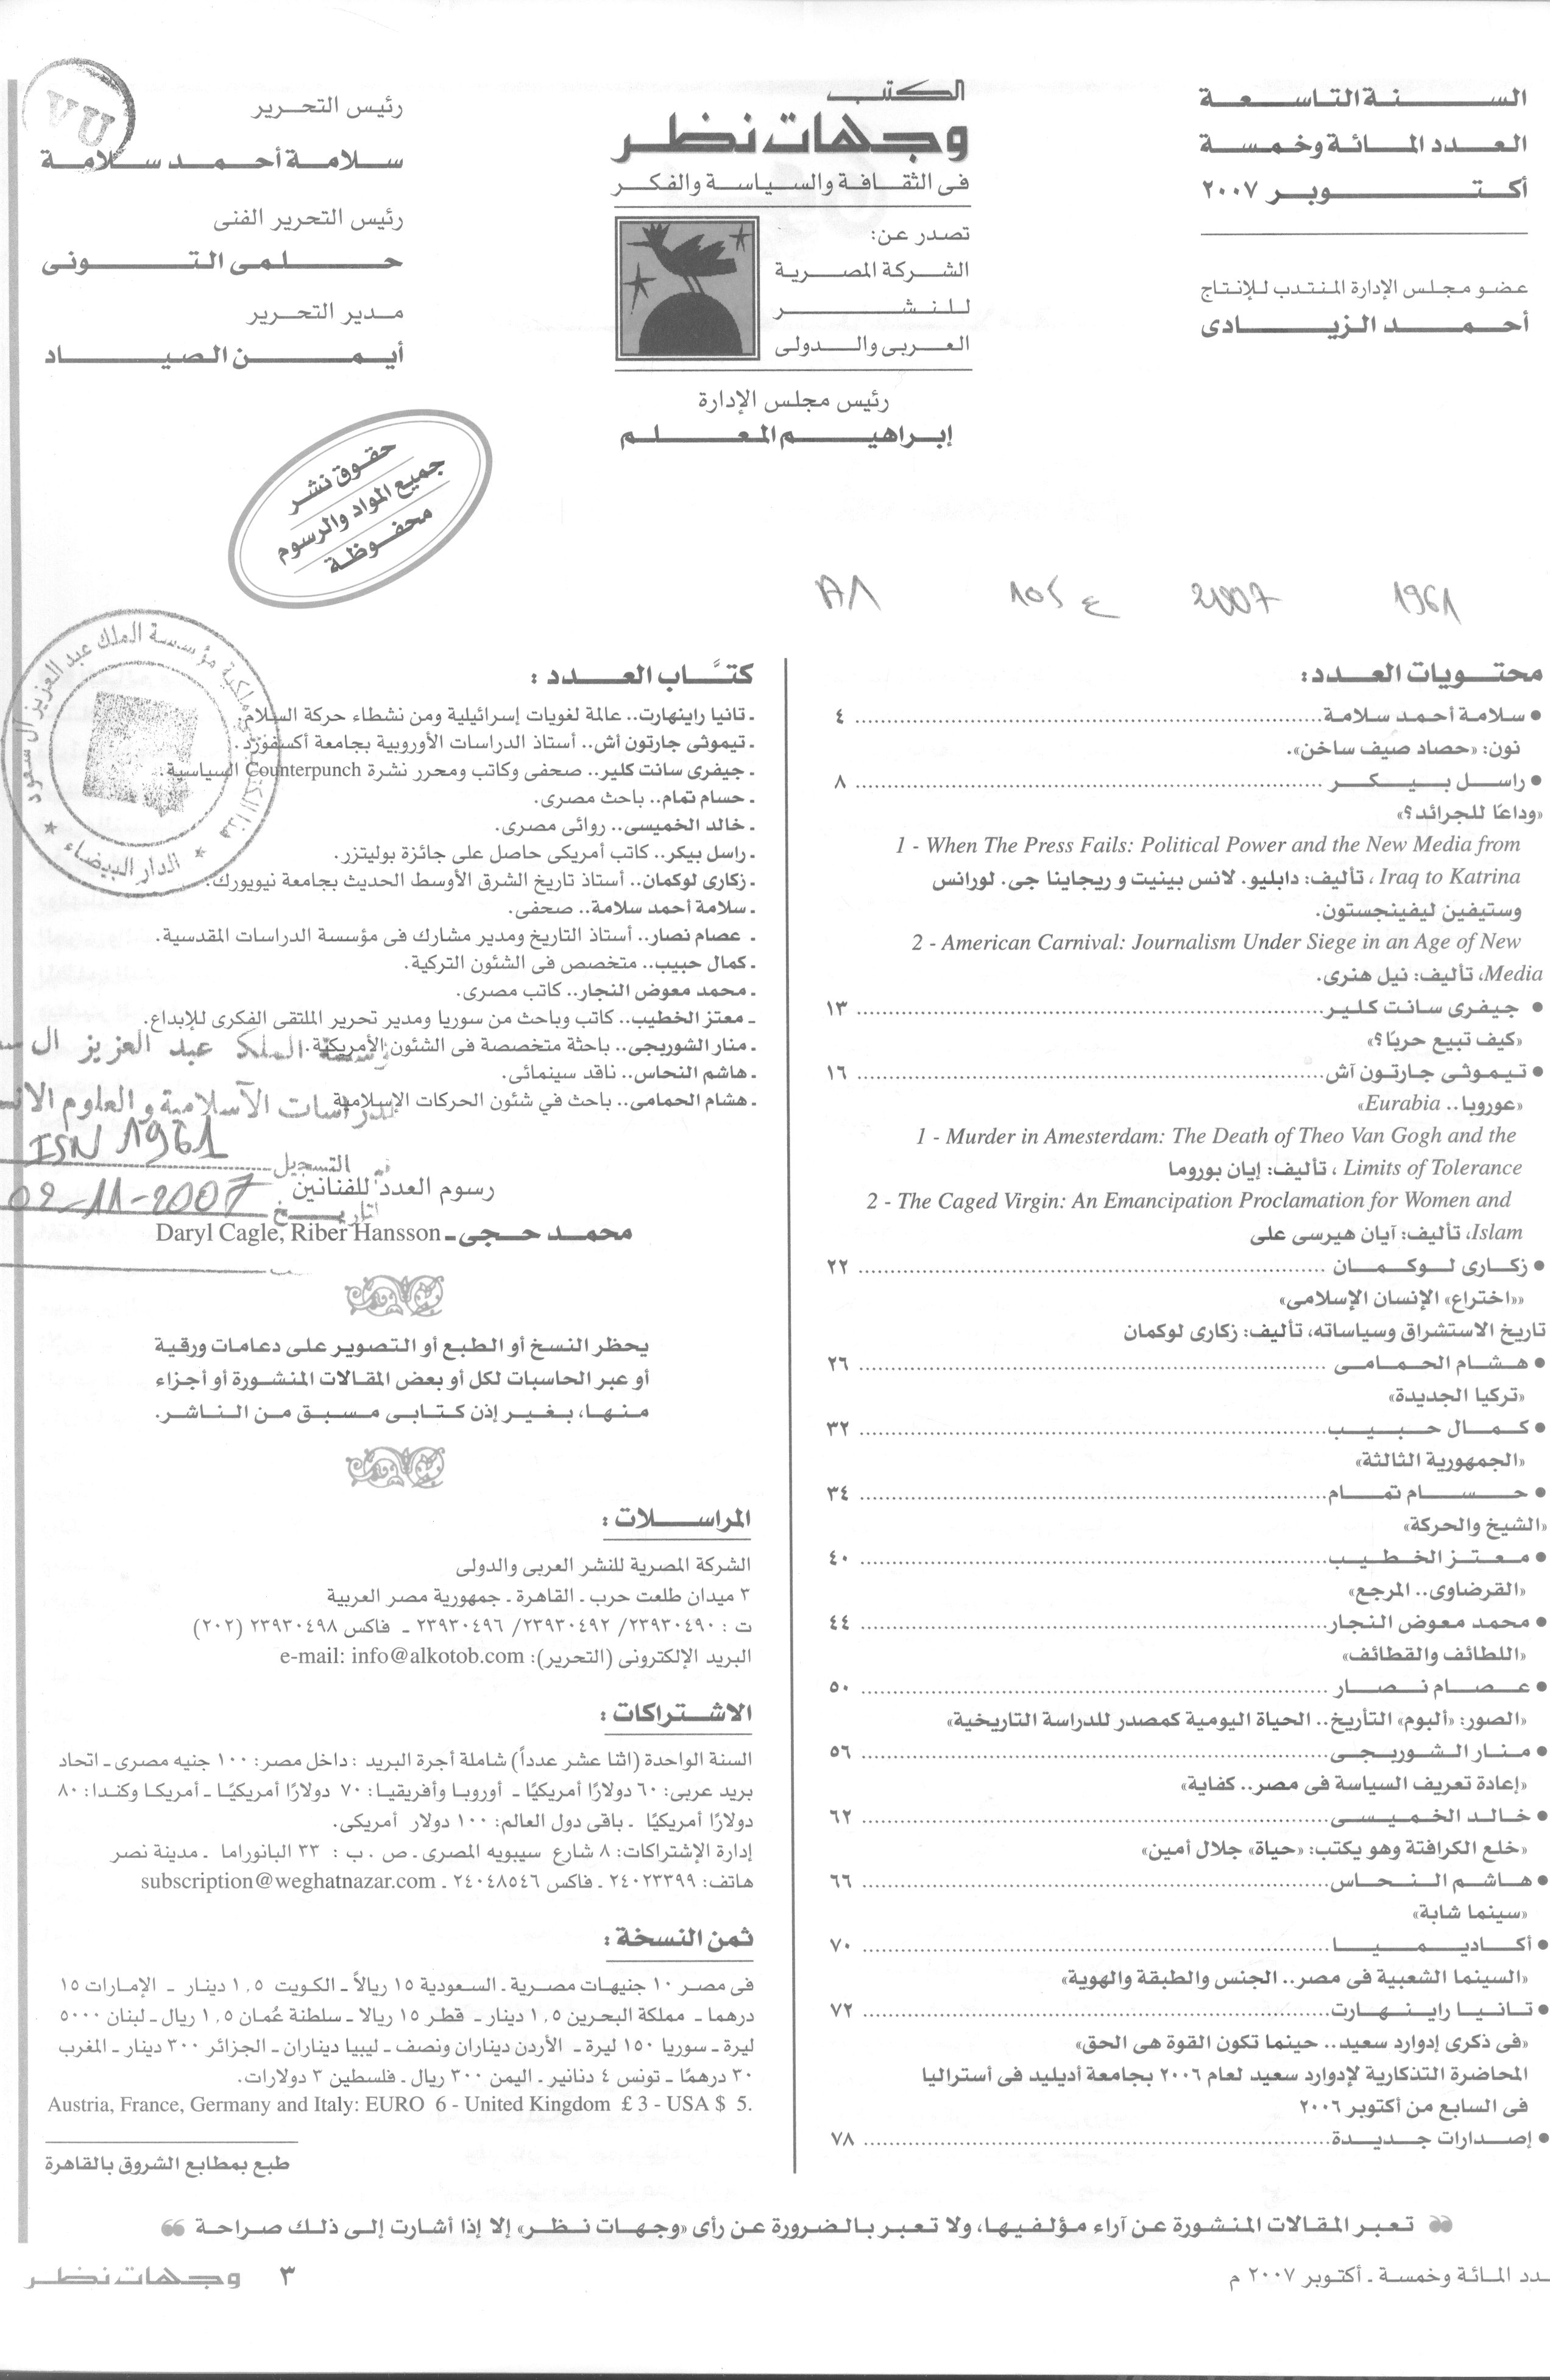 السنة التاسعة
العدد المائة وخمسة
أكتوبر ٢٠٠٧
عضو مجلس الإدارة المنتدب للإنتاج
أحمد الزيادى
الكتب
وجهات نظر
فى الثقافة والسياسة والفكر
تصدر عن:
الشركة المصرية
للنشر
العربى والدولى
رئيس مجلس الإدارة
إبراهيم المعلم
رئيس التحرير
سلامة أحمد سلامة
رئيس التحرير الفنى
حلمى التونى
مدير التحرير
أيمن الصياد
VU
حقوق نشر
جميع المواد والرسوم
محفوظة
1961 2007 ع 105 A1
محتويات العدد:
• سلامة أحمد سلامة ........ ٤
نون: «حصاد صيف ساخن».
• راسل بيكر ........ ٨
«وداعًا للجرائد؟»
1 - When The Press Fails: Political Power and the New Media from
Iraq to Katrina ، تأليف: دابليو. لانس بينيت و ريجاينا جى. لورانس
وستيفين ليفينجستون.
2 - American Carnival: Journalism Under Siege in an Age of New
Media، تأليف: نيل هنرى.
• جيفرى سانت كلير ........ ١٣
«كيف تبيع حربًا؟»
• تيموثى جارتون آش ........ ١٦
«عوروبا.. Eurabia»
1 - Murder in Amesterdam: The Death of Theo Van Gogh and the
Limits of Tolerance ، تأليف: إيان بوروما
2 - The Caged Virgin: An Emancipation Proclamation for Women and
Islam، تأليف: آيان هيرسى على
• زكارى لوكمان ........ ٢٢
««اختراع» الإنسان الإسلامى»
تاريخ الاستشراق وسياساته، تأليف: زكارى لوكمان
• هشام الحمامى ........ ٢٦
«تركيا الجديدة»
• كمال حبيب ........ ٣٢
«الجمهورية الثالثة»
• حسام تمام ........ ٣٤
«الشيخ والحركة»
• معتز الخطيب ........ ٤٠
«القرضاوى.. المرجع»
• محمد معوض النجار ........ ٤٤
«اللطائف والقطائف»
• عصام نصار ........ ٥٠
«الصور: «ألبوم» التأريخ.. الحياة اليومية كمصدر للدراسة التاريخية»
• منار الشوربجى ........ ٥٦
«إعادة تعريف السياسة فى مصر.. كفاية»
• خالد الخميسى ........ ٦٢
«خلع الكرافتة وهو يكتب: «حياة» جلال أمين»
• هاشم النحاس ........ ٦٦
«سينما شابة»
• أكاديميا ........ ٧٠
«السينما الشعبية فى مصر.. الجنس والطبقة والهوية»
• تانيا راينهارت ........ ٧٢
«فى ذكرى إدوارد سعيد.. حينما تكون القوة هى الحق»
المحاضرة التذكارية لإدوارد سعيد لعام ٢٠٠٦ بجامعة أديليد فى أستراليا
فى السابع من أكتوبر ٢٠٠٦
• إصدارات جديدة ........ ٧٨
كتَّاب العدد:
ـ تانيا راينهارت.. عالمة لغويات إسرائيلية ومن نشطاء حركة السلام.
ـ تيموثى جارتون آش.. أستاذ الدراسات الأوروبية بجامعة أكسفورد.
ـ جيفرى سانت كلير.. صحفى وكاتب ومحرر نشرة Counterpunch السياسية.
ـ حسام تمام.. باحث مصرى.
ـ خالد الخميسى.. روائى مصرى.
ـ راسل بيكر.. كاتب أمريكى حاصل على جائزة بوليتزر.
ـ زكارى لوكمان.. أستاذ تاريخ الشرق الأوسط الحديث بجامعة نيويورك.
ـ سلامة أحمد سلامة.. صحفى.
ـ عصام نصار.. أستاذ التاريخ ومدير مشارك فى مؤسسة الدراسات المقدسية.
ـ كمال حبيب.. متخصص فى الشئون التركية.
ـ محمد معوض النجار.. كاتب مصرى.
ـ معتز الخطيب.. كاتب وباحث من سوريا ومدير تحرير الملتقى الفكرى للإبداع.
ـ منار الشوربجى.. باحثة متخصصة فى الشئون الأمريكية.
ـ هاشم النحاس.. ناقد سينمائى.
ـ هشام الحمامى.. باحث في شئون الحركات الإسلامية
ملكية مؤسسة الملك عبد العزيز آل سعود
الدار البيضاء
الملك عبد العزيز ال
للدراسات الآسلامية والعلوم الانس
التسجيل ISN 1961
تاريخ 02-11-2007
رسوم العدد للفنانين
محمد حجى ـ Daryl Cagle, Riber Hansson
يحظر النسخ أو الطبع أو التصوير على دعامات ورقية
أو عبر الحاسبات لكل أو بعض المقالات المنشورة أو أجزاء
منها، بغير إذن كتابى مسبق من الناشر.
المراسلات:
الشركة المصرية للنشر العربى والدولى
٣ ميدان طلعت حرب ـ القاهرة ـ جمهورية مصر العربية
ت : ٢٣٩٣٠٤٩٠/ ٢٣٩٣٠٤٩٢/ ٢٣٩٣٠٤٩٦ ـ فاكس ٢٣٩٣٠٤٩٨ (٢٠٢)
البريد الإلكترونى (التحرير): e-mail: info@alkotob.com
الاشتراكات:
السنة الواحدة (اثنا عشر عدداً) شاملة أجرة البريد : داخل مصر: ١٠٠ جنيه مصرى ـ اتحاد
بريد عربى: ٦٠ دولارًا أمريكيًا ـ أوروبا وأفريقيا: ٧٠ دولارًا أمريكيًا ـ أمريكا وكندا: ٨٠
دولارًا أمريكيًا ـ باقى دول العالم: ١٠٠ دولار أمريكى.
إدارة الإشتراكات: ٨ شارع سيبويه المصرى ـ ص . ب : ٣٣ البانوراما ـ مدينة نصر
هاتف: ٢٤٠٢٣٣٩٩ ـ فاكس ٢٤٠٤٨٥٤٦ ـ subscription@weghatnazar.com
ثمن النسخة:
فى مصر ١٠ جنيهات مصرية ـ السعودية ١٥ ريالاً ـ الكويت ١,٥ دينار ـ الإمارات ١٥
درهما ـ مملكة البحرين ١,٥ دينار ـ قطر ١٥ ريالا ـ سلطنة عُمان ١,٥ ريال ـ لبنان ٥٠٠٠
ليرة ـ سوريا ١٥٠ ليرة ـ الأردن ديناران ونصف ـ ليبيا ديناران ـ الجزائر ٣٠٠ دينار ـ المغرب
٣٠ درهمًا ـ تونس ٤ دنانير ـ اليمن ٣٠٠ ريال ـ فلسطين ٣ دولارات.
Austria, France, Germany and Italy: EURO 6 - United Kingdom £ 3 - USA $ 5.
طبع بمطابع الشروق بالقاهرة
تعبر المقالات المنشورة عن آراء مؤلفيها، ولا تعبر بالضرورة عن رأى «وجهات نظر» إلا إذا أشارت إلى ذلك صراحة
ـدد المائة وخمسة ـ أكتوبر ٢٠٠٧ م
٣ وجهات نظر